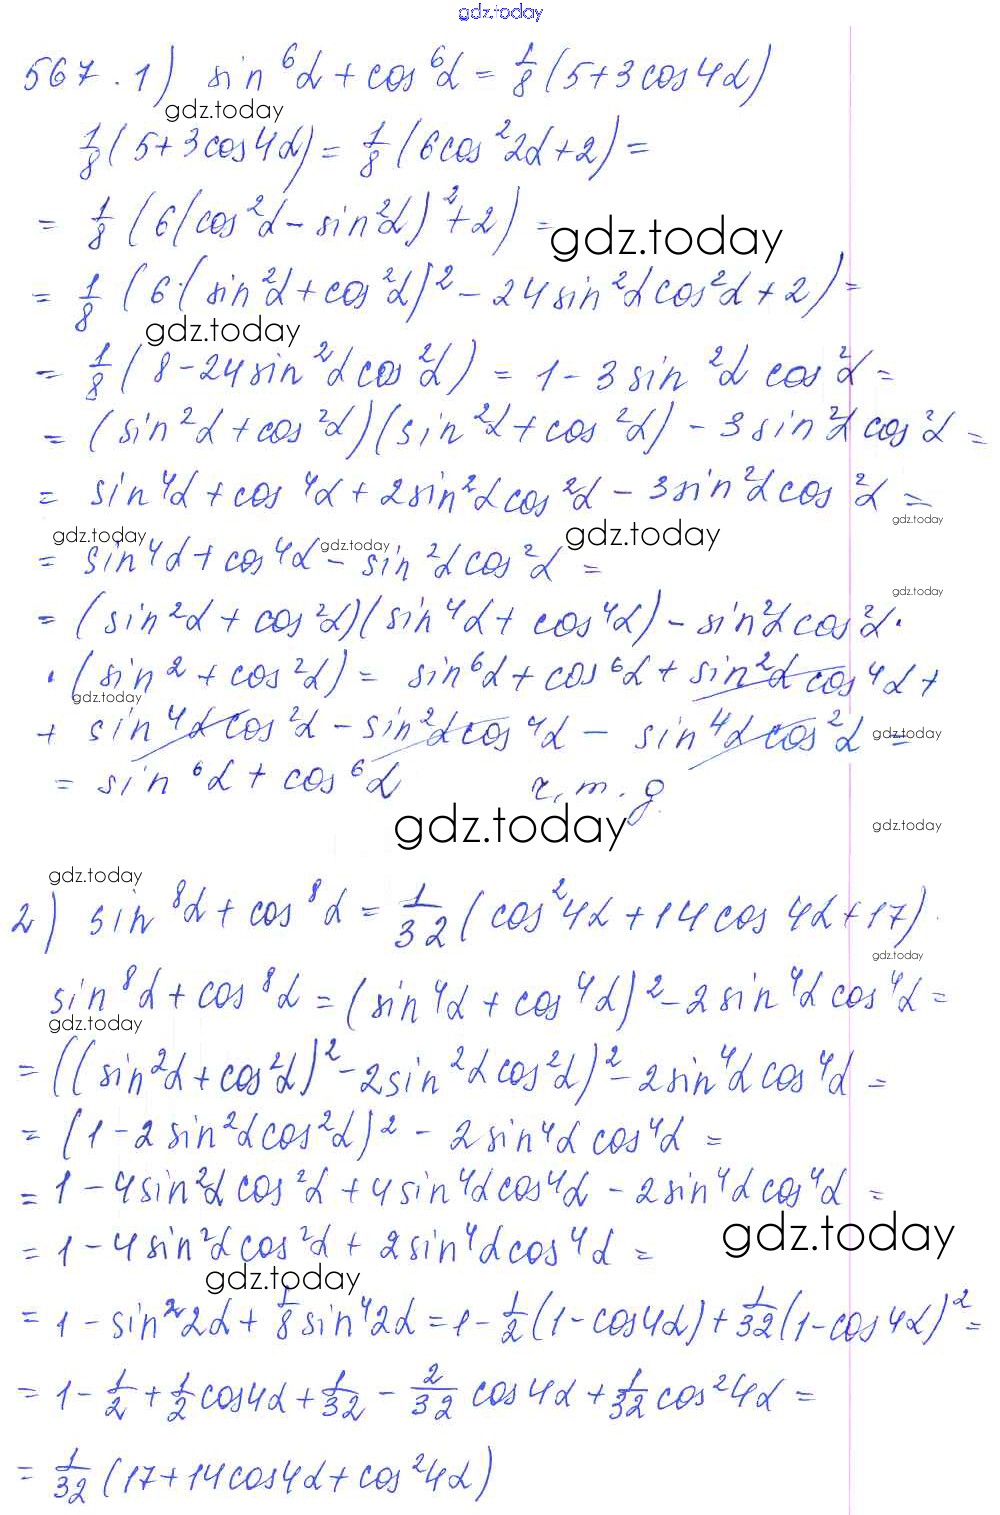 gdz.today
567. 1) sin⁶α + cos⁶α = 1/8 (5+3cos4α)
gdz.today
1/8 (5+3cos4α) = 1/8 (6cos²2α+2) =
= 1/8 (6(cos²α - sin²α)²+2) =
gdz.today
= 1/8 (6·(sin²α+cos²α)² - 24sin²αcos²α+2) =
gdz.today
= 1/8 (8-24sin²αcos²α) = 1-3sin²α cos²α =
= (sin²α+cos²α)(sin²α+cos²α) - 3sin²αcos²α =
= sin⁴α + cos⁴α + 2sin²αcos²α - 3sin²αcos²α =
gdz.today gdz.today gdz.today gdz.today
= sin⁴α + cos⁴α - sin²αcos²α =
gdz.today
= (sin²α + cos²α)(sin⁴α + cos⁴α) - sin²αcos²α ·
· (sin² + cos²α) = sin⁶α + cos⁶α + sin²αcos⁴α +
gdz.today
+ sin⁴αcos²α - sin²αcos⁴α - sin⁴αcos²α =
gdz.today
= sin⁶α + cos⁶α ч.т.д.
gdz.today gdz.today
gdz.today
2) sin⁸α + cos⁸α = 1/32 (cos²4α+14cos4α+17)
gdz.today
sin⁸α + cos⁸α = (sin⁴α + cos⁴α)² - 2sin⁴αcos⁴α =
gdz.today
= ((sin²α+cos²α)² - 2sin²αcos²α)² - 2sin⁴αcos⁴α =
= (1-2sin²αcos²α)² - 2sin⁴αcos⁴α =
= 1-4sin²αcos²α + 4sin⁴αcos⁴α - 2sin⁴αcos⁴α =
gdz.today
= 1-4sin²αcos²α + 2sin⁴αcos⁴α =
gdz.today
= 1-sin²2α + 1/8 sin⁴2α = 1 - 1/2 (1-cos4α) + 1/32 (1-cos4α)² =
= 1 - 1/2 + 1/2 cos4α + 1/32 - 2/32 cos4α + 1/32 cos²4α =
= 1/32 (17+14cos4α+cos²4α)